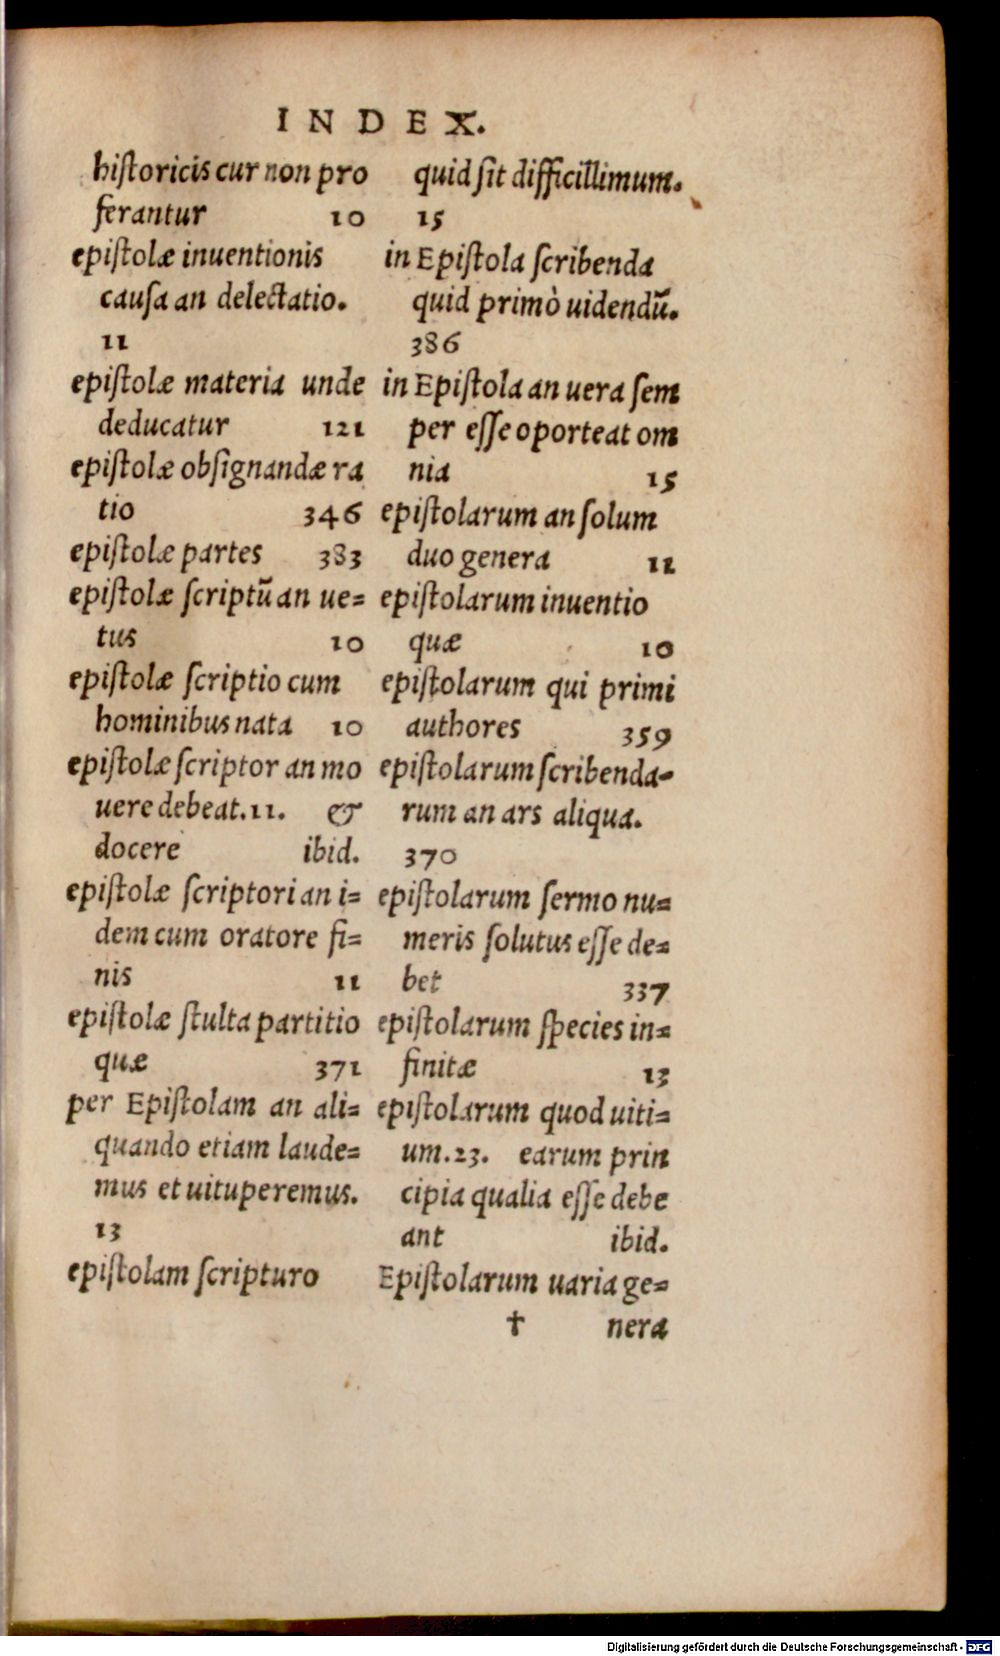 INDEX.
historicis cur non pro
ferantur 10
epistolæ inuentionis
causa an delectatio.
11
epistolæ materia unde
deducatur 121
epistolæ obsignandæ ra
tio 346
epistolæ partes 383
epistolæ scriptũ an ue=
tus 10
epistolæ scriptio cum
hominibus nata 10
epistolæ scriptor an mo
uere debeat. 11. &
docere ibid.
epistolæ scriptori an i=
dem cum oratore fi=
nis 11
epistolæ stulta partitio
quæ 371
per Epistolam an ali=
quando etiam laude=
mus et uituperemus.
13
epistolam scripturo
quid sit difficillimum.
15
in Epistola scribenda
quid primò uidendũ.
386
in Epistola an uera sem
per esse oporteat om
nia 15
epistolarum an solum
duo genera 11
epistolarum inuentio
quæ 10
epistolarum qui primi
authores 359
epistolarum scribenda-
rum an ars aliqua.
370
epistolarum sermo nu=
meris solutus esse de=
bet 337
epistolarum species in=
finitæ 13
epistolarum quod uiti=
um. 23. earum prin
cipia qualia esse debe
ant ibid.
Epistolarum uaria ge=
† nera
Digitalisierung gefördert durch die Deutsche Forschungsgemeinschaft - DFG